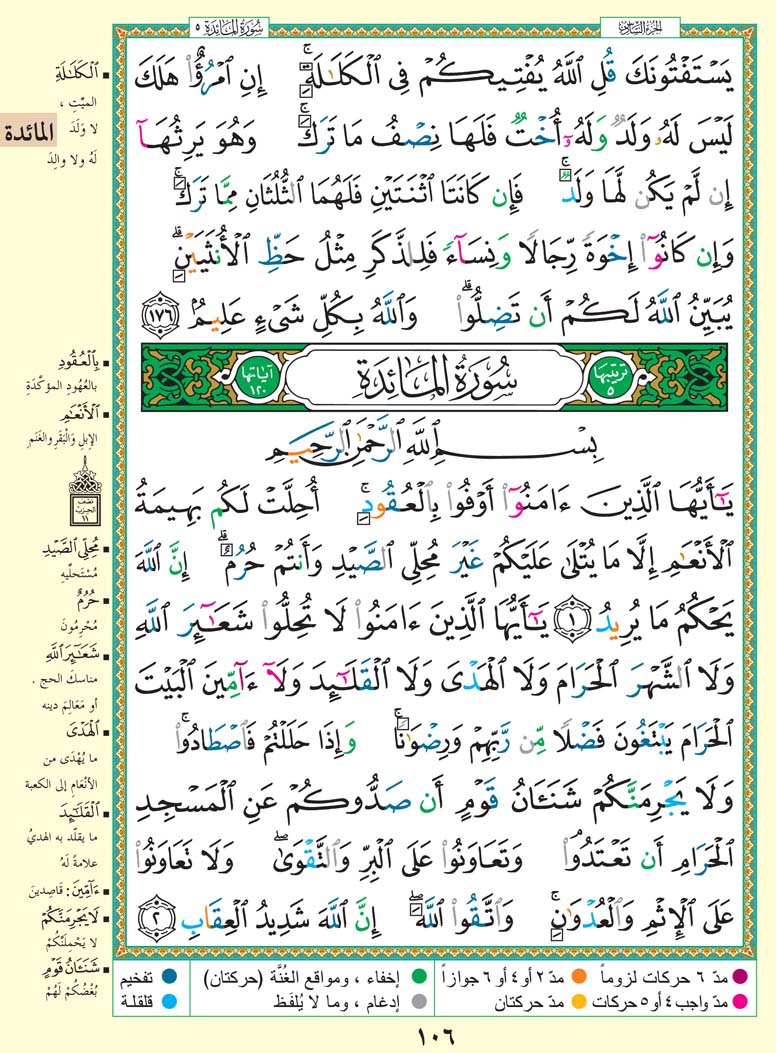 سُورَةُ المَائدَة ٥
الجزء السادس
يَسْتَفْتُونَكَ قُلِ ٱللَّهُ يُفْتِيكُمْ فِى ٱلْكَلَـٰلَةِ ۚ إِنِ ٱمْرُؤٌا۟ هَلَكَ
لَيْسَ لَهُۥ وَلَدٌ وَلَهُۥٓ أُخْتٌ فَلَهَا نِصْفُ مَا تَرَكَ ۚ وَهُوَ يَرِثُهَآ
إِن لَّمْ يَكُن لَّهَا وَلَدٌ ۚ فَإِن كَانَتَا ٱثْنَتَيْنِ فَلَهُمَا ٱلثُّلُثَانِ مِمَّا تَرَكَ ۚ
وَإِن كَانُوٓا۟ إِخْوَةً رِّجَالًا وَنِسَآءً فَلِلذَّكَرِ مِثْلُ حَظِّ ٱلْأُنثَيَيْنِ ۗ
يُبَيِّنُ ٱللَّهُ لَكُمْ أَن تَضِلُّوا۟ ۗ وَٱللَّهُ بِكُلِّ شَىْءٍ عَلِيمٌۢ ١٧٦
ترتيبها ٥
سُورَةُ المَائدَة
آياتها ١٢٠
بِسْمِ ٱللَّهِ ٱلرَّحْمَـٰنِ ٱلرَّحِيمِ
يَـٰٓأَيُّهَا ٱلَّذِينَ ءَامَنُوٓا۟ أَوْفُوا۟ بِٱلْعُقُودِ ۚ أُحِلَّتْ لَكُم بَهِيمَةُ
ٱلْأَنْعَـٰمِ إِلَّا مَا يُتْلَىٰ عَلَيْكُمْ غَيْرَ مُحِلِّى ٱلصَّيْدِ وَأَنتُمْ حُرُمٌ ۗ إِنَّ ٱللَّهَ
يَحْكُمُ مَا يُرِيدُ ١ يَـٰٓأَيُّهَا ٱلَّذِينَ ءَامَنُوا۟ لَا تُحِلُّوا۟ شَعَـٰٓئِرَ ٱللَّهِ
وَلَا ٱلشَّهْرَ ٱلْحَرَامَ وَلَا ٱلْهَدْىَ وَلَا ٱلْقَلَـٰٓئِدَ وَلَآ ءَآمِّينَ ٱلْبَيْتَ
ٱلْحَرَامَ يَبْتَغُونَ فَضْلًا مِّن رَّبِّهِمْ وَرِضْوَٰنًا ۚ وَإِذَا حَلَلْتُمْ فَٱصْطَادُوا۟ ۚ
وَلَا يَجْرِمَنَّكُمْ شَنَـَٔانُ قَوْمٍ أَن صَدُّوكُمْ عَنِ ٱلْمَسْجِدِ
ٱلْحَرَامِ أَن تَعْتَدُوا۟ ۘ وَتَعَاوَنُوا۟ عَلَى ٱلْبِرِّ وَٱلتَّقْوَىٰ ۖ وَلَا تَعَاوَنُوا۟
عَلَى ٱلْإِثْمِ وَٱلْعُدْوَٰنِ ۚ وَٱتَّقُوا۟ ٱللَّهَ ۖ إِنَّ ٱللَّهَ شَدِيدُ ٱلْعِقَابِ ٢
المائدة
ٱلْكَلَـٰلَةِ
الميّتِ ،
لا وَلَدَ
لَهُ ولا والِدَ
بِٱلْعُقُودِ
بالعُهُودِ المؤكَّدَةِ
ٱلْأَنْعَـٰمِ
الإبلِ وَالْبَقَرِ والغَنَمِ
نصف
الحزب
١١
مُحِلِّى ٱلصَّيْدِ
مُسْتَحلِّيهِ
حُرُمٌ
مُحْرِمُونَ
شَعَـٰٓئِرَ ٱللَّهِ
مناسكَ الحج .
أو مَعَالِمَ دينه
ٱلْهَدْىَ
ما يُهْدَى من
الأنْعَامِ إلى الكعبة
ٱلْقَلَـٰٓئِدَ
ما يقلّد به الهديُ
علامةً لَهُ
ءَآمِّينَ : قَاصِدينَ
لَا يَجْرِمَنَّكُمْ
لا يَحْمِلَنَّكُمْ
شَنَـَٔانُ قَوْمٍ
بُغْضُكُمْ لَهُمْ
مدّ ٦ حركات لزوماً
مدّ ٢ أو ٤ أو ٦ جوازاً
إخفاء ، ومواقع الغُنَّة (حركتان)
تفخيم
مدّ واجب ٤ أو ٥ حركات
مدّ حركتان
إدغام ، وما لا يُلفَظ
قلقلة
١٠٦